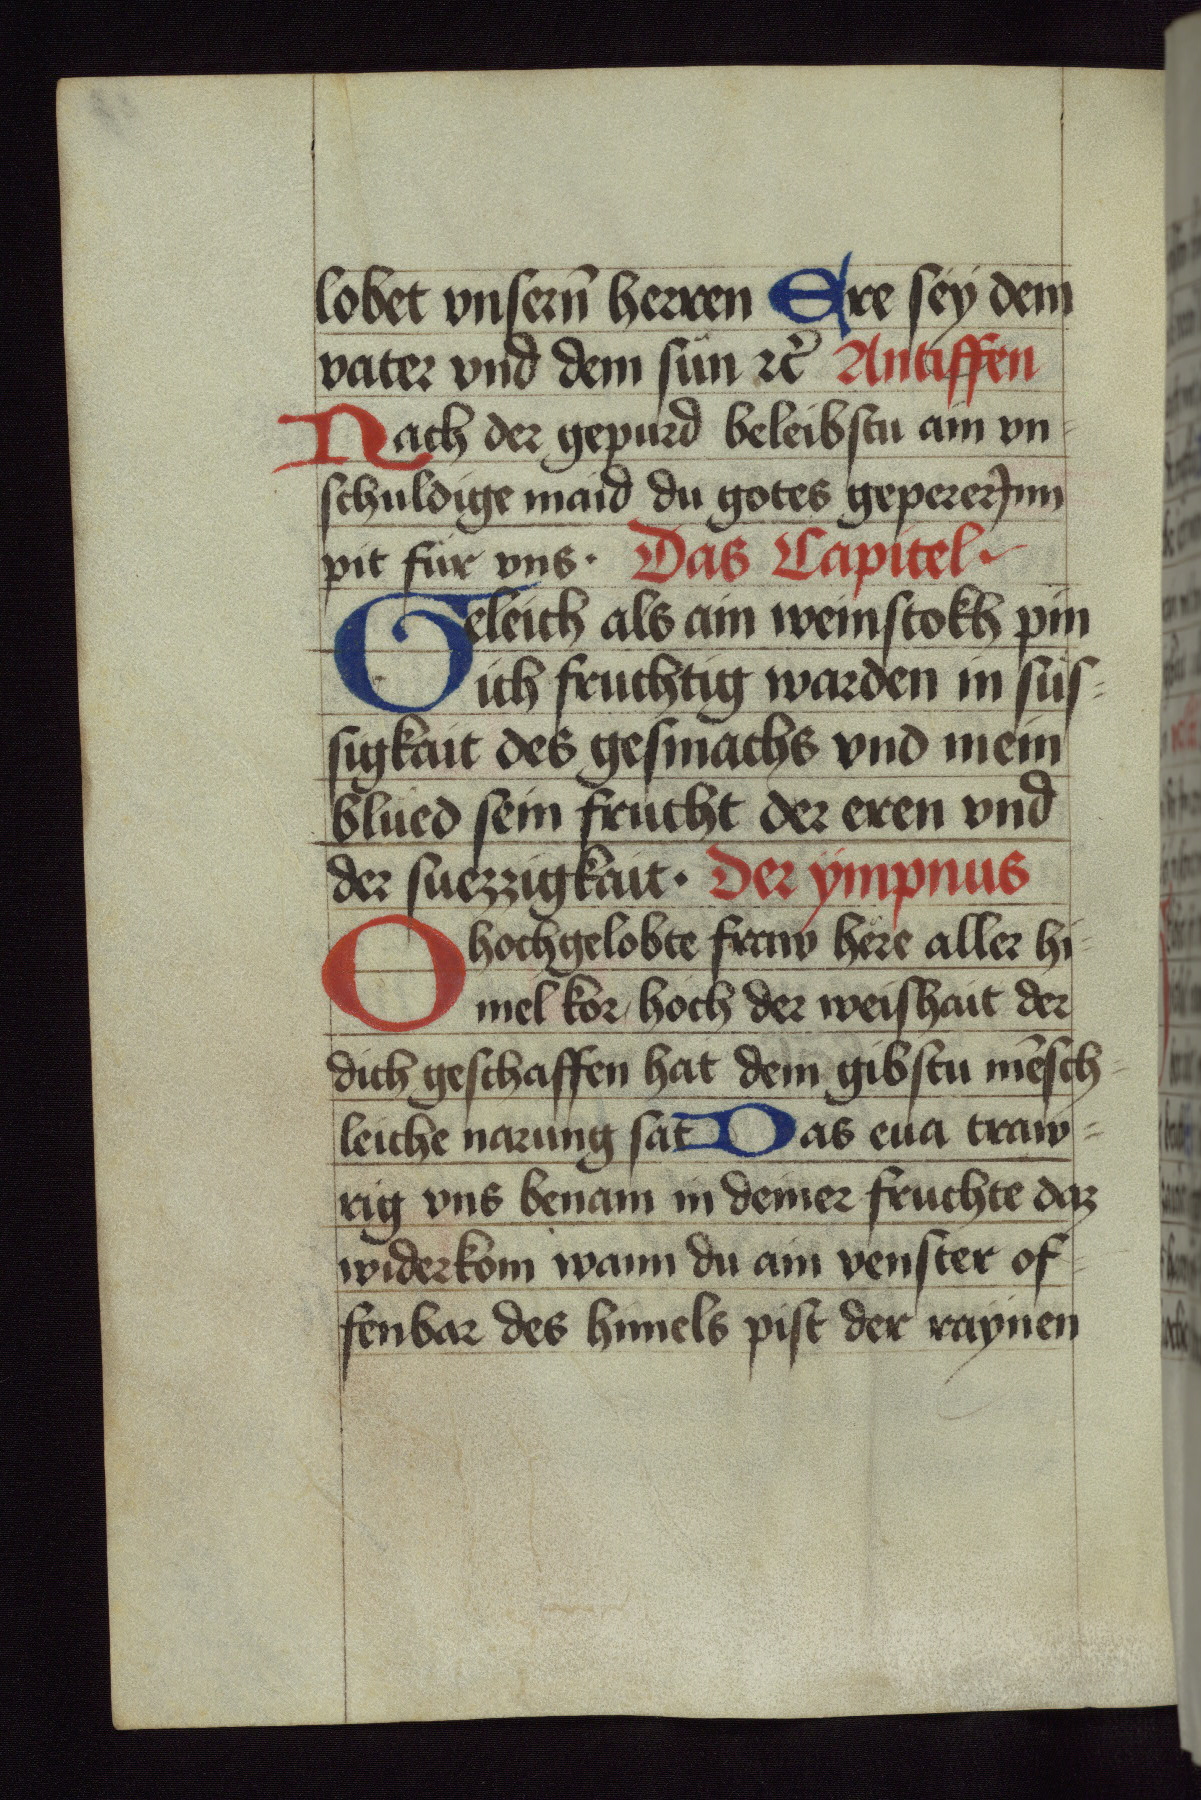 lobet vnsern̄ herren Ere sey dem
vater vnd dem sün ꝛc̄ Antiffen
Nach der gepurd beleibstu ain vn-
schuldige maid du gotes gepererinn
pit für vns· Das Capitel·
Geleich als ain weinstokh pin
ich fruchtig warden in süs-
sigkait des gesmachs vnd mein
blüed sein frucht der eren vnd
der suezzigkait· Der ympnus
O hochgelobte fraw here aller hi-
mel kor hoch der weishait der
dich geschaffen hat dem gibstu mēsch-
leiche narung sat Das eua traw-
rig vns benam in deiner fruchte daz
widerkom wann du ain venster of-
fenbar des himels pist der raynen